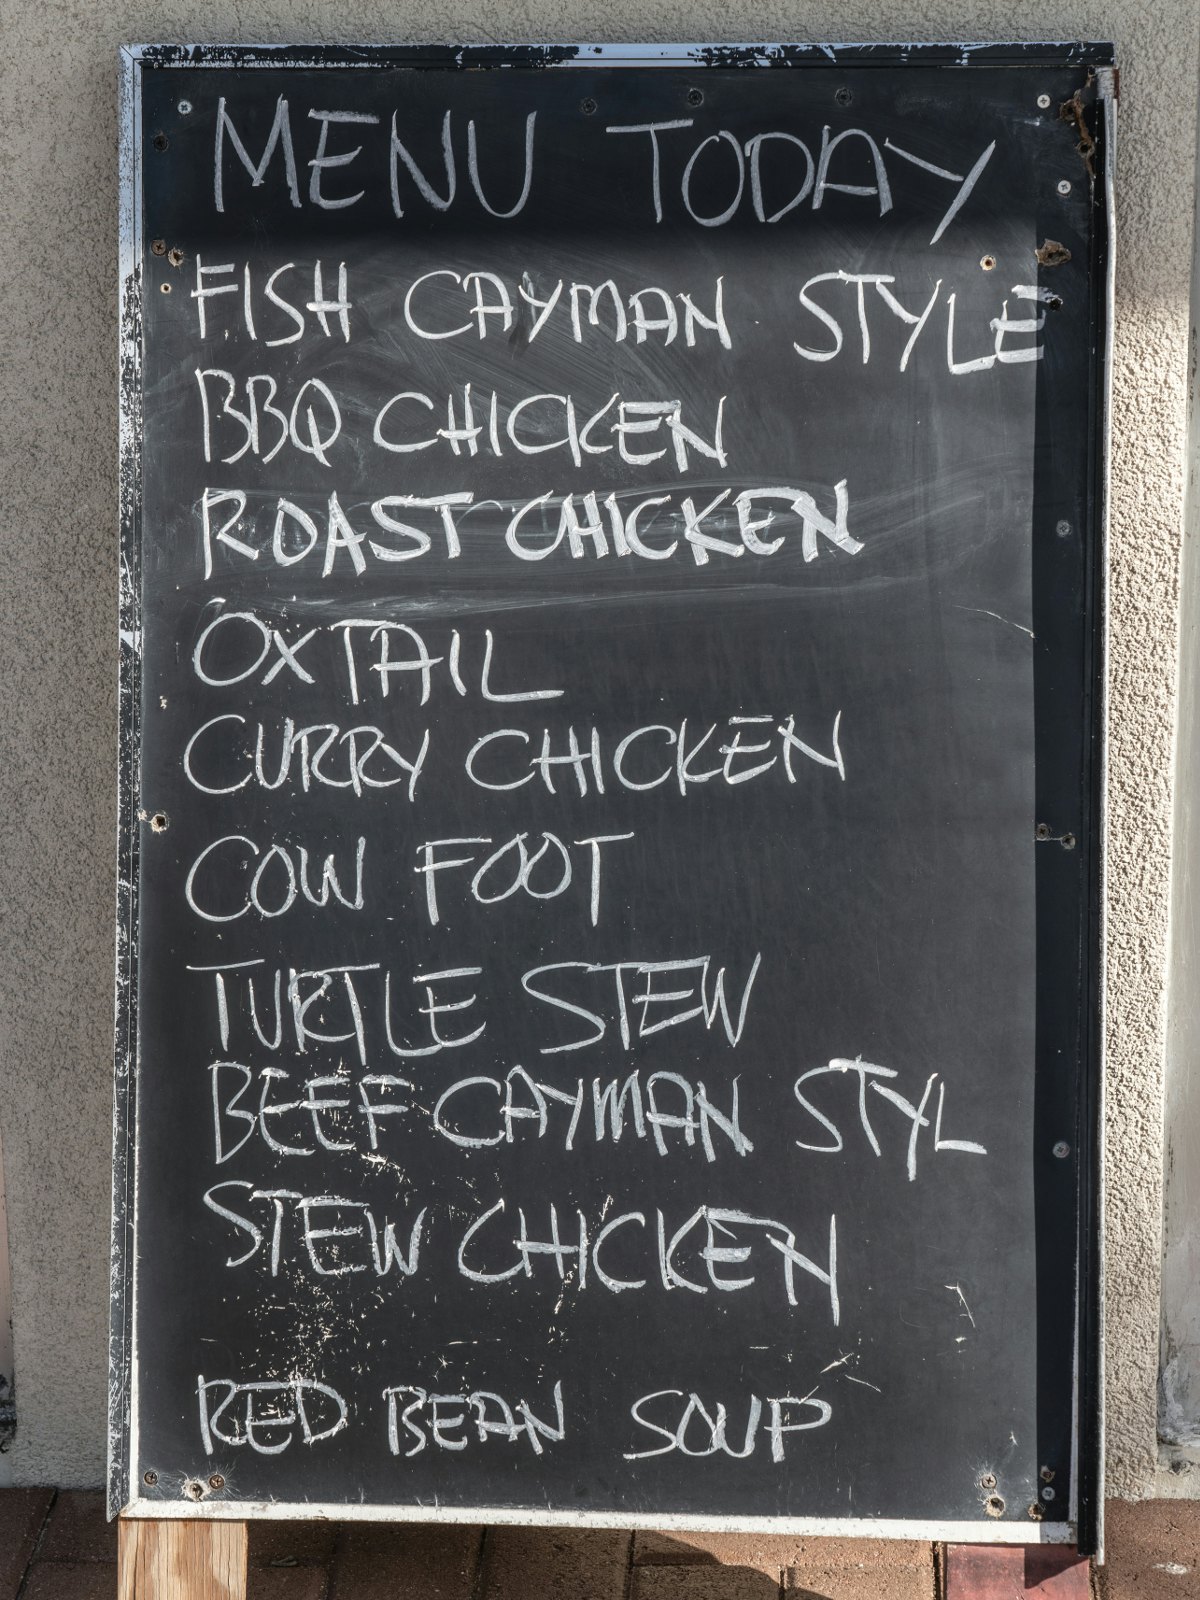 MENU TODAY
FISH CAYMAN STYLE
BBQ CHICKEN
ROAST CHICKEN
OXTAIL
CURRY CHICKEN
COW FOOT
TURTLE STEW
BEEF CAYMAN STYL
STEW CHICKEN
RED BEAN SOUP